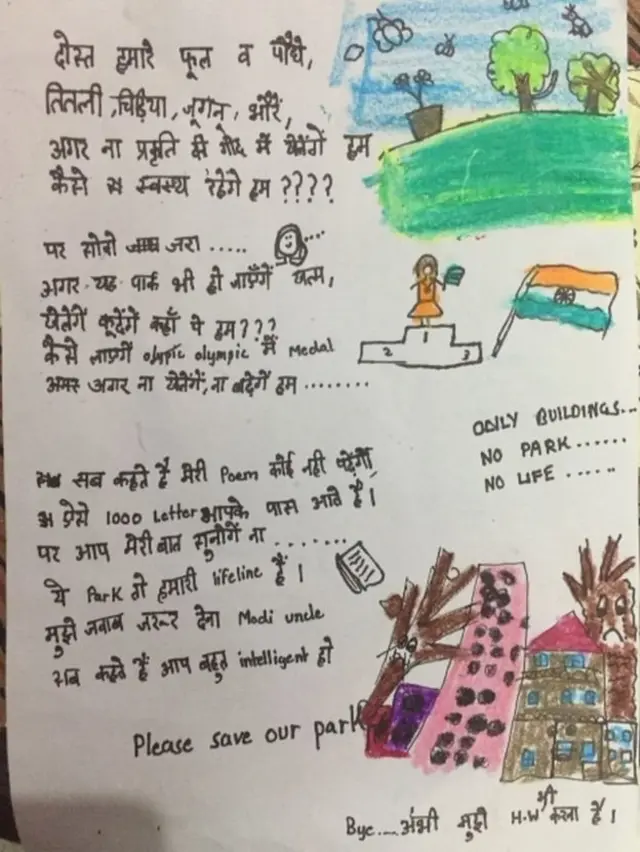 दोस्त हमारे फूल व पौधे,
तितली, चिड़िया, जूगन, भौरें,
अगर ना प्रकृति की गोद में खेलेंगें हम
कैसे स्वस्थ रहेंगे हम ????
पर सोचो जरा .....
अगर यह पार्क भी हो जाएँगें खत्म,
खेलेंगें कूदेंगें कहाँ पे हम???
कैसे लाएगें olypic olympic में Medal
अगर ना खेलेंगें, ना बढ़ेगें हम ........
1
2
3
ONLY BUILDINGS...
NO PARK......
NO LIFE ......
सब कहते है मेरी Poem कोई नही पढ़ेगा,
ऐसे 1000 Letter आपके पास आते है।
पर आप मेरी बात सुनोगें ना ........
ये Park तो हमारी lifeline हैं।
मुझे जवाब जरूर देना Modi uncle
सब कहते हैं आप बहुत intelligent हो
Please save our park
Bye.... अभी मुझे H.W भी करना है।